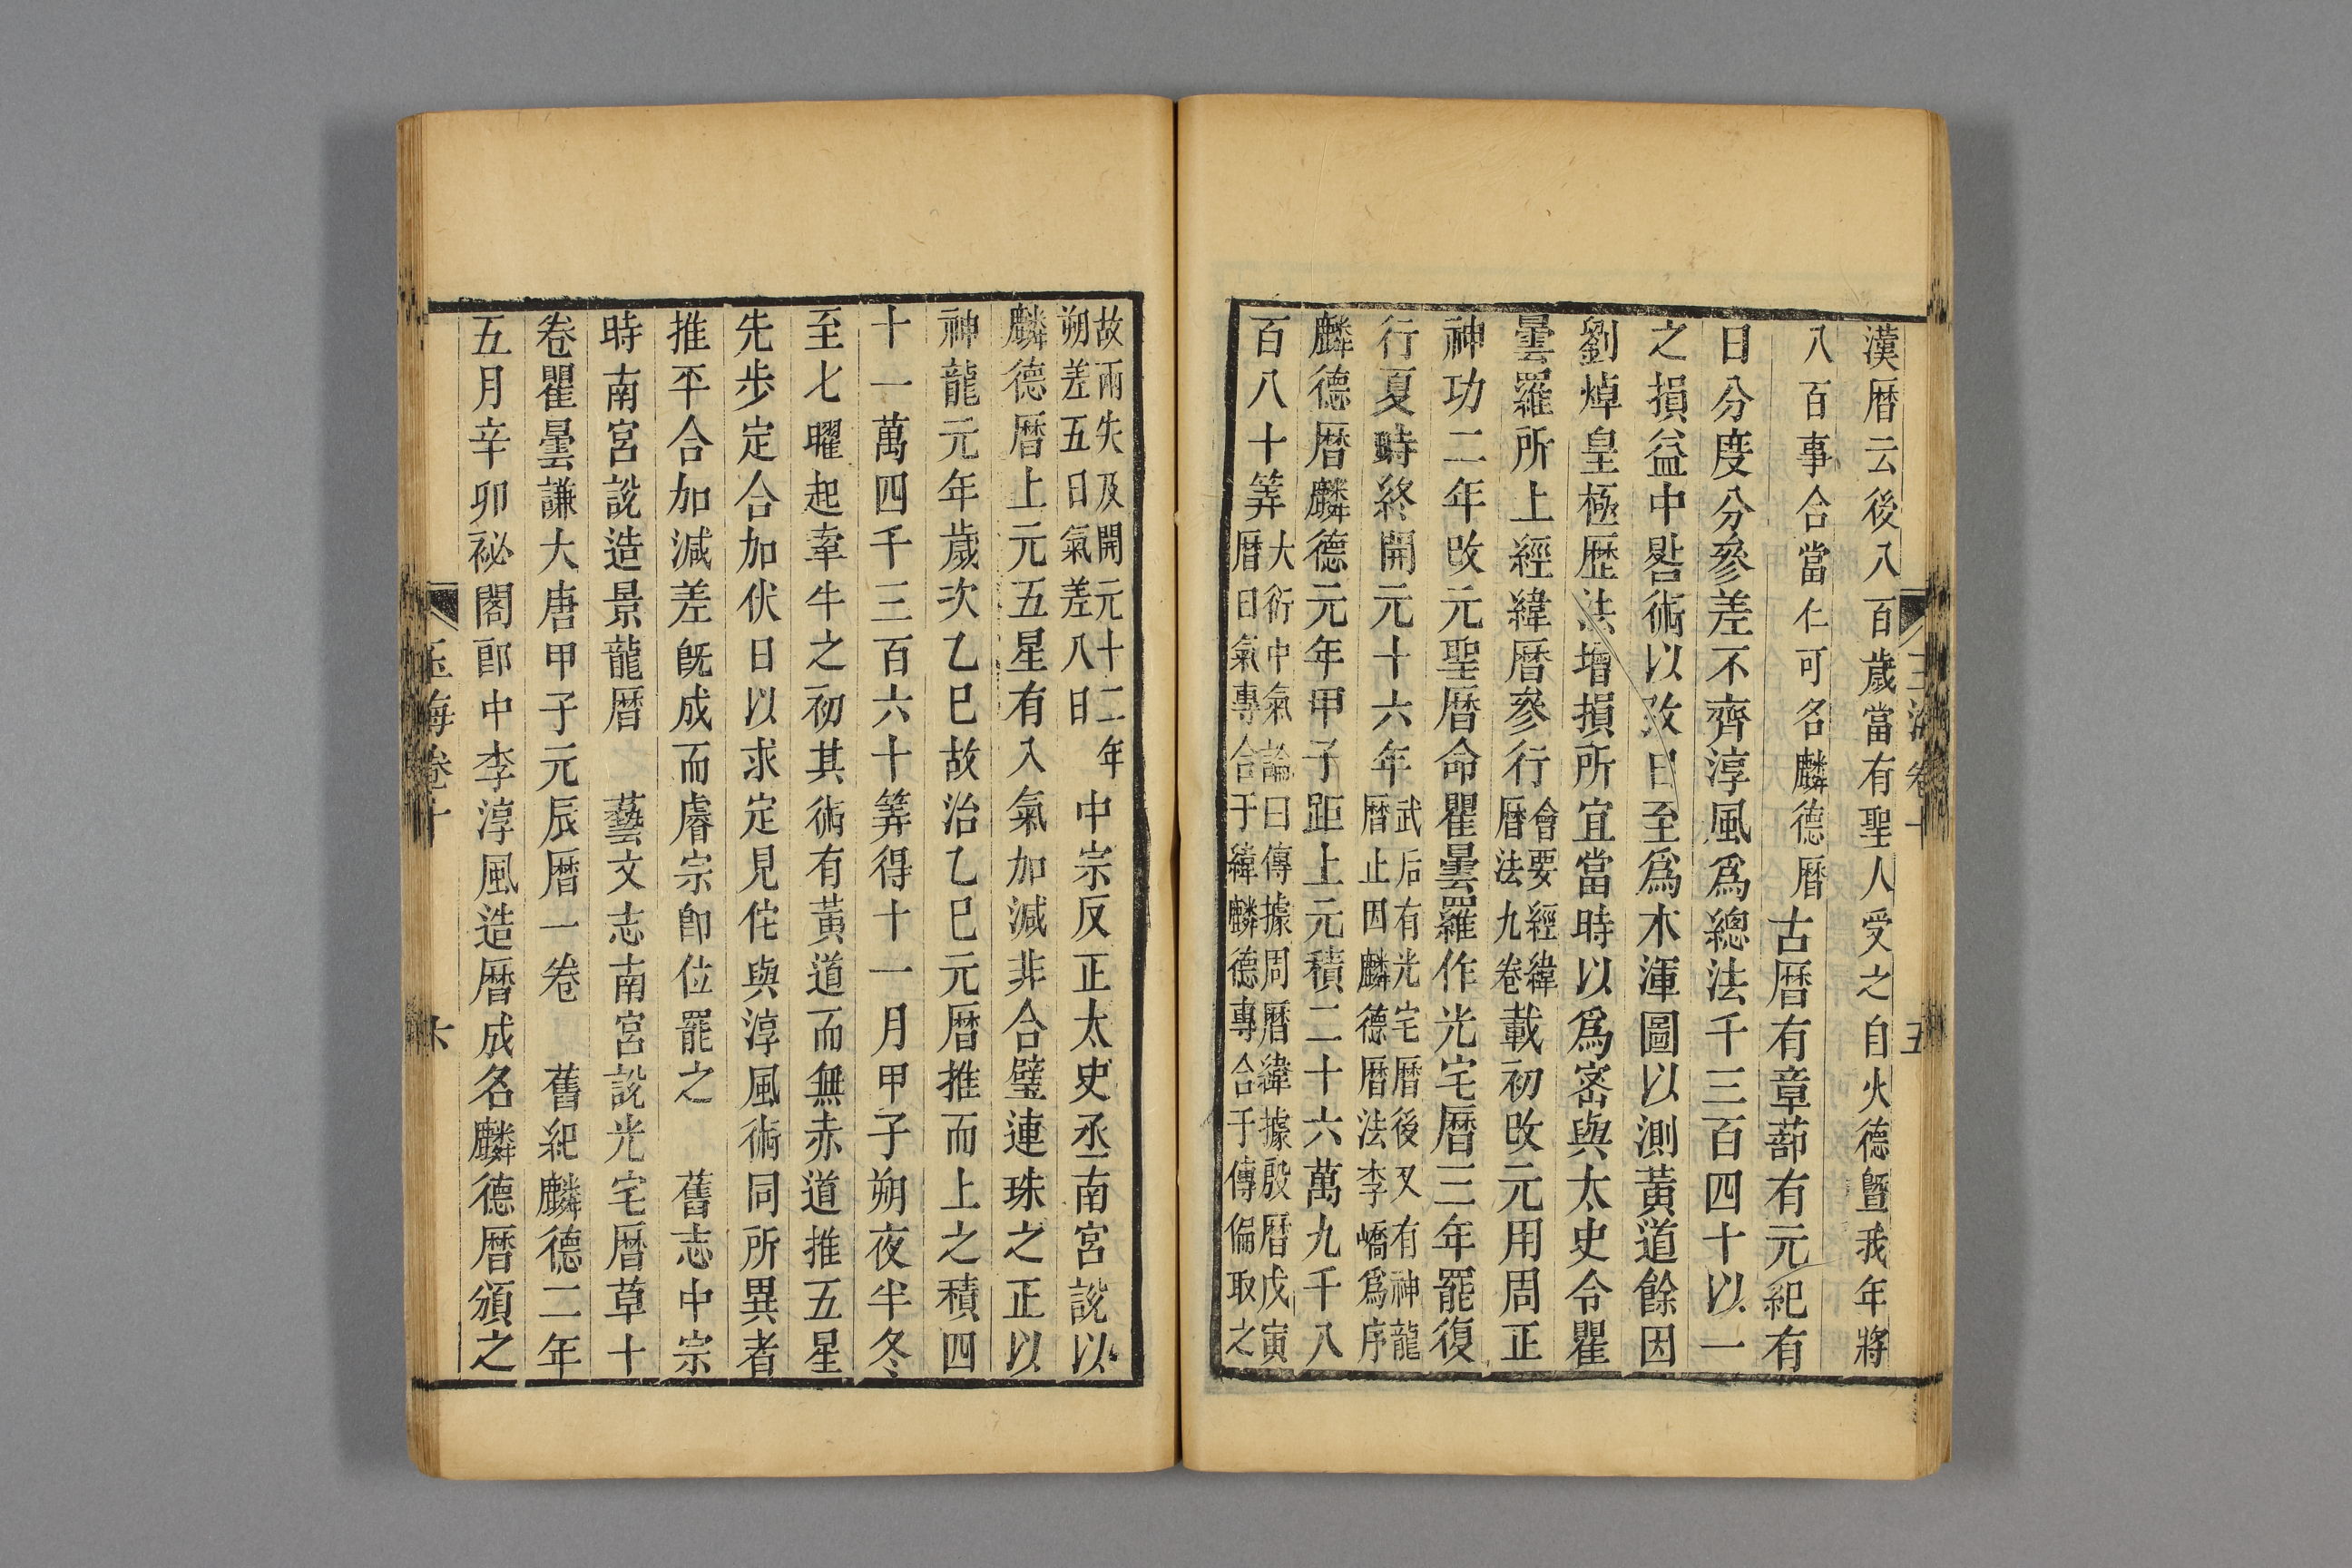 漢曆云後八百歲當有聖人受之自火德曁我年將
八百事合當仁可名麟德曆古曆有章蔀有元紀有
日分度分參差不齊淳風爲總法千三百四十以一
之損益中晷術以攷日至爲木渾圖以測黃道餘因
劉焯皇極歷法增損所宜當時以爲密與太史令瞿
曇羅所上經緯曆參行會要經緯
曆法九卷載初改元用周正
神功二年改元聖曆命瞿曇羅作光宅曆三年罷復
行夏時終開元十六年武后有光宅曆後又有神龍
曆止因麟德曆法李嶠爲序
麟德曆麟德元年甲子距上元積二十六萬九千八
百八十筭大衍中氣論曰傳據周曆緯據殷曆戊寅
曆日氣專合于緯麟德專合于傳偏取之
故兩失及開元十二年
朔差五日氣差八日中宗反正太史丞南宮說以
麟德曆上元五星有入氣加減非合璧連珠之正以
神龍元年歲次乙巳故治乙巳元曆推而上之積四
十一萬四千三百六十筭得十一月甲子朔夜半冬
至七曜起牽牛之初其術有黃道而無赤道推五星
先步定合加伏日以求定見佗與淳風術同所異者
推平合加減差旣成而睿宗卽位罷之 舊志中宗
時南宮說造景龍曆 藝文志南宮說光宅曆草十
卷瞿曇謙大唐甲子元辰曆一卷 舊紀麟德二年
五月辛卯祕閣郎中李淳風造曆成名麟德曆頒之
玉海卷十 六